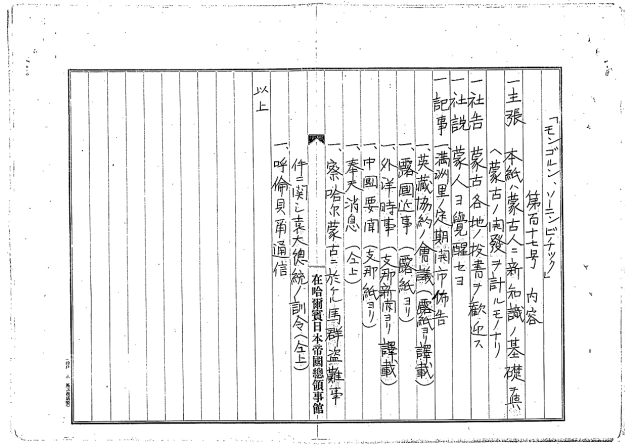 「モンゴルン、ソーニンビチック」
第百十七号 内容
一主張 本紙ハ蒙古人ニ新知識ノ基礎ヲ与
ヘ蒙古ノ開発ヲ計ルモノナリ
一社告 蒙古各地ノ投書ヲ歓迎ス
一社説 蒙人ヨ覚醒セヨ
一記事 一、満洲里ノ定期開市佈告
一、英蔵協約ノ會議(露紙ヨリ譯載)
一、露國近事(露紙ヨリ)
一、外洋時事(支那新聞ヨリ譯載)
一、中國要聞(支那紙ヨリ)
一、奉天消息(仝上)
一、察哈尔蒙古ニ於ケル馬群盗難事
件ニ関シ袁大總統ノ訓令(仝上)
一、呼倫貝甯通信
以上
在哈爾賓日本帝國總領事館